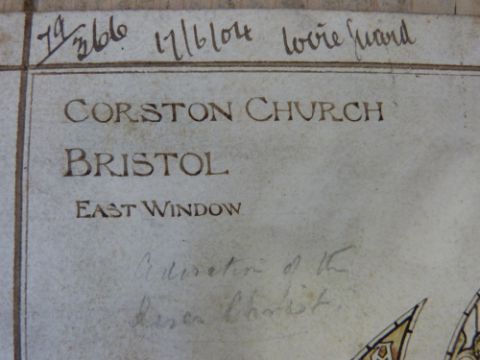 79/366. 17/6/04 Wire Guard
CORSTON CHURCH
BRISTOL
EAST WINDOW
Adoration of the
Risen Christ.